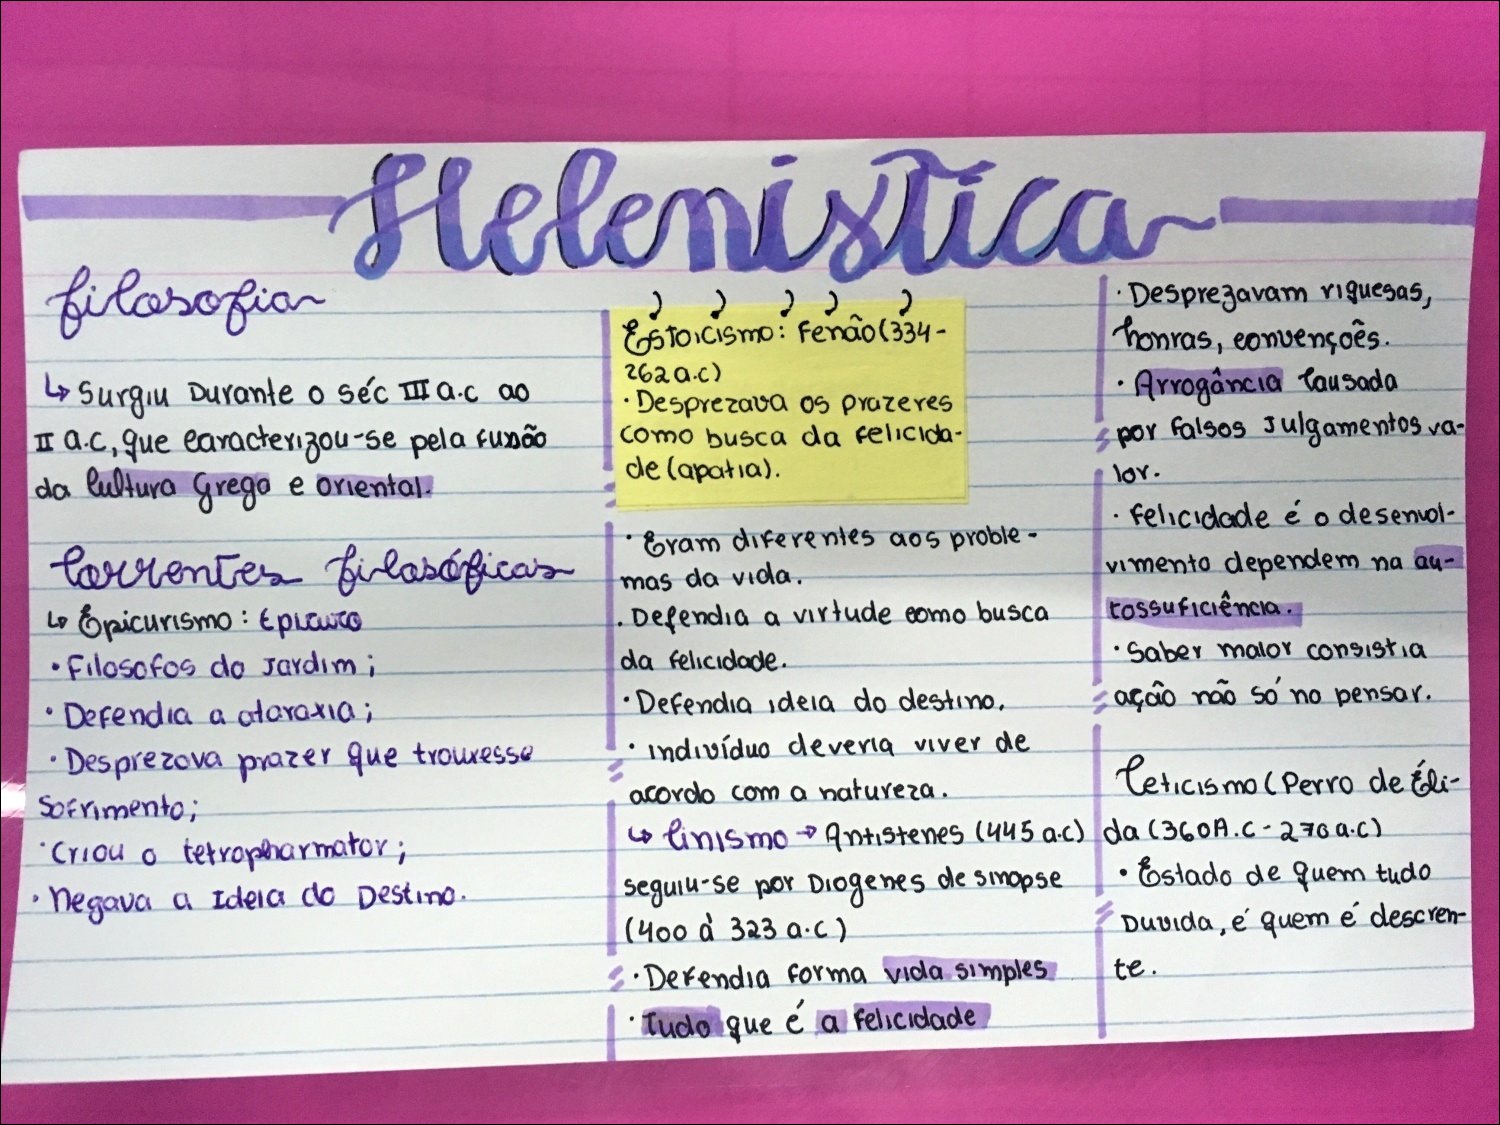 Helenistica
filosofia
↳ Surgiu Durante o séc III a.c ao
II a.c, que caracterizou-se pela fusão
da Cultura Grega e oriental.
Correntes filosóficas
↳ Epicurismo: Epicuro
· Filosofos do Jardim;
· Defendia a ataraxia;
· Desprezava prazer que trouxesse
Sofrimento;
· Criou o tetropharmator;
· Negava a Ideia do Destino.
Estoicismo: Fenão (334-
262 a.c)
· Desprezava os prazeres
como busca da felicida-
de (apatia).
· Eram diferentes aos proble-
mas da vida.
. Defendia a virtude como busca
da felicidade.
· Defendia ideia do destino.
· indivíduo deveria viver de
acordo com a natureza.
↳ Cinismo → Antistenes (445 a.c)
seguiu-se por Diogenes de sinopse
(400 à 323 a.c)
· Defendia forma vida simples
· Tudo que é a felicidade
· Desprezavam riquesas,
honras, convenções.
· Arrogância Causada
por falsos Julgamentos va-
lor.
· felicidade é o desenvol-
vimento dependem na au-
tossuficiência.
· Saber maior consistia
ação não só no pensar.
Ceticismo (Perro de Éli-
da (360A.c - 270 a.c)
· Estado de quem tudo
Duvida, é quem é descren-
te.